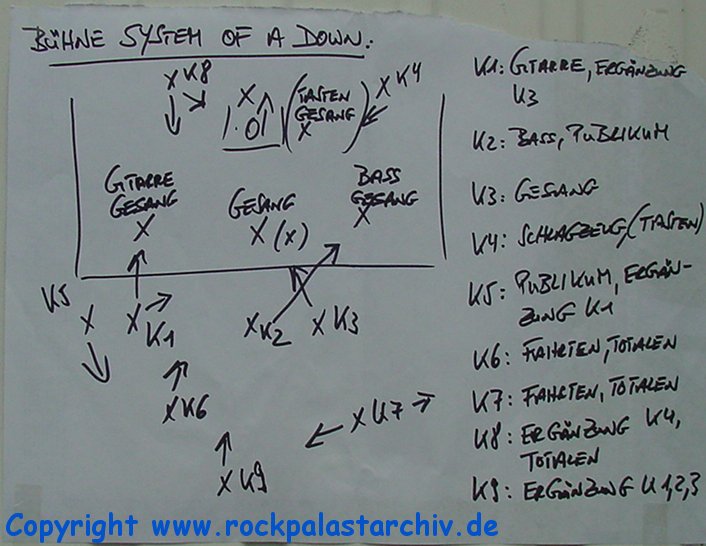 BÜHNE SYSTEM OF A DOWN:
X K8
X
(TASTEN
GESANG
X)
X K4
GITARRE
GESANG
X
GESANG
X (X)
BASS
GESANG
X
K5
X
X
K1
X K2
X K3
X K6
X K7
X K9
K1: GITARRE, ERGÄNZUNG
K3
K2: BASS, PUBLIKUM
K3: GESANG
K4: SCHLAGZEUG, (TASTEN)
K5: PUBLIKUM, ERGÄN-
ZUNG K1
K6: FAHRTEN, TOTALEN
K7: FAHRTEN, TOTALEN
K8: ERGÄNZUNG K4,
TOTALEN
K9: ERGÄNZUNG K1,2,3
Copyright www.rockpalastarchiv.de